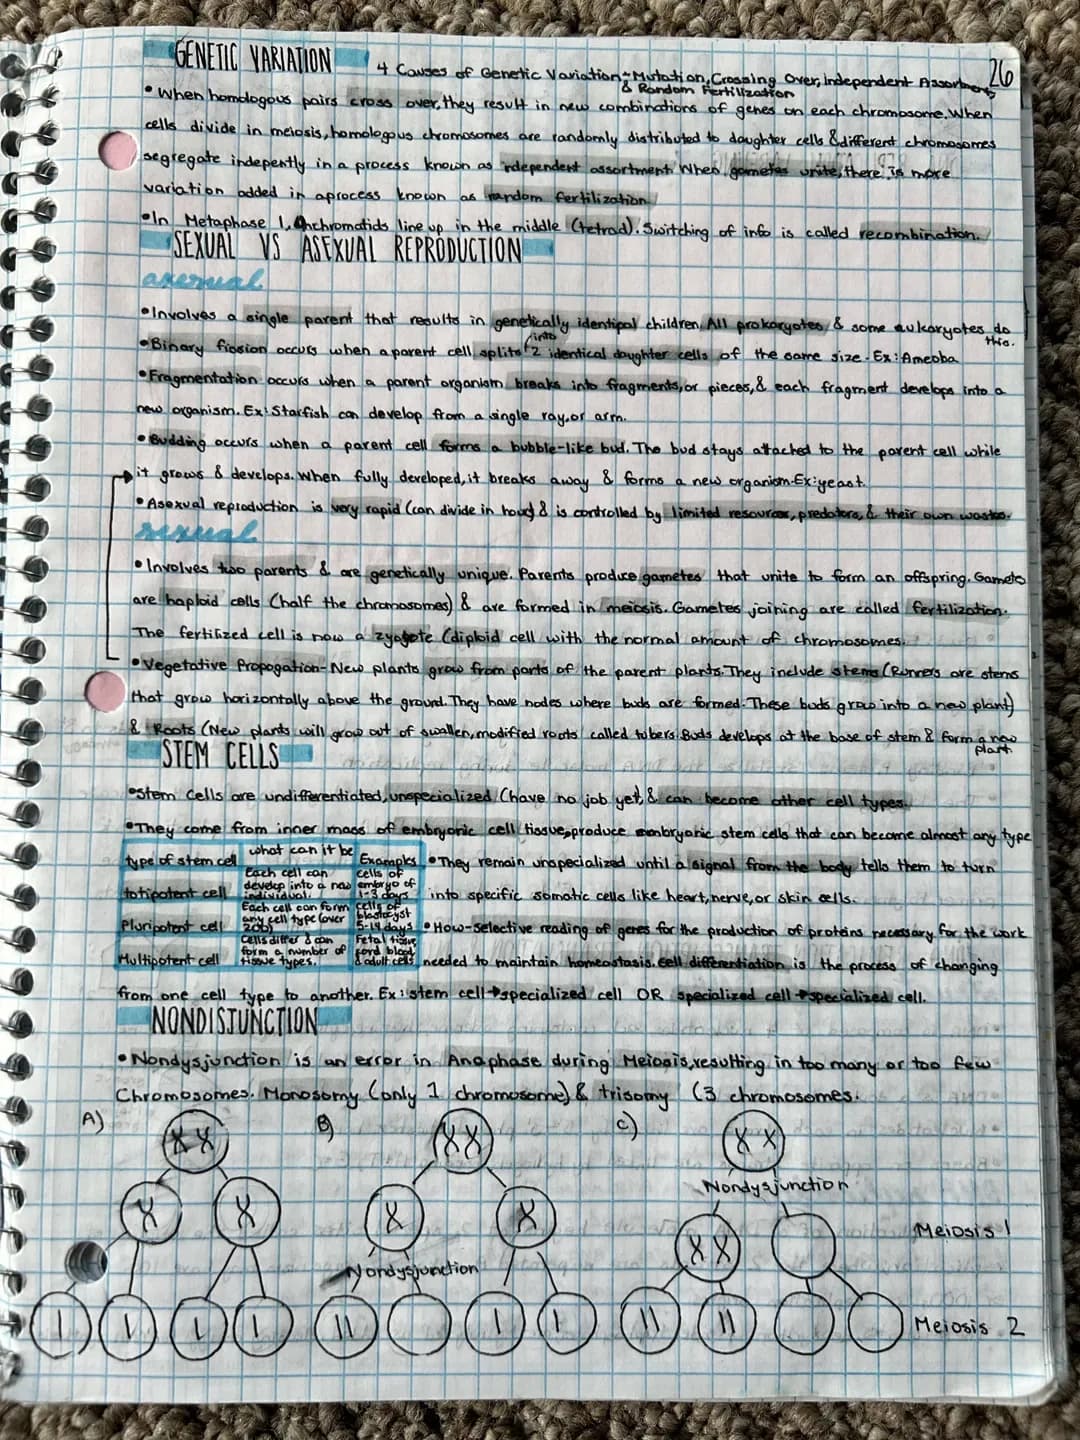 GENETIC VARIATION
4 Causes of Genetic Variation- Mutation, Crossing Over, Independent Assortment, 26
& Random Fertilization
• When homologous pairs cross over, they result in new combinations of genes on each chromosome. When
cells divide in meiosis, homologous chromosomes are randomly distributed to daughter cells & different chromosomes
segregate indepently in a process known as independent assortment. When gametes unite, there is more
variation added in a process known as random fertilization.
• In Metaphase 1, chromatids line up in the middle (tetrad). Switching of info is called recombination.
SEXUAL VS ASEXUAL REPRODUCTION
asexual
• Involves a single parent that results in genetically identical children. All prokaryotes & some eukaryotes do
this.
• Binary fission occurs when a parent cell splits into 2 identical daughter cells of the same size. Ex: Ameoba
• Fragmentation occurs when a parent organism breaks into fragments, or pieces, & each fragment develops into a
new organism. Ex: Starfish can develop from a single ray, or arm.
• Budding occurs when a parent cell forms a bubble-like bud. The bud stays attached to the parent cell while
it grows & develops. When fully developed, it breaks away & forms a new organism. Ex: yeast.
• Asexual reproduction is very rapid (can divide in hours) & is controlled by limited resources, predators, & their own wastes.
sexual
• Involves two parents & are genetically unique. Parents produce gametes that unite to form an offspring. Gamets
are haploid cells (half the chromosomes) & are formed in meiosis. Gametes joining are called fertilization.
The fertilized cell is now a zygote (diploid cell with the normal amount of chromosomes.
• Vegetative Propogation- New plants grow from parts of the parent plants. They include stems (Runners are stems
that grow horizontally above the ground. They have nodes where buds are formed. These buds grow into a new plant)
& Roots (New plants will grow out of swollen, modified roots called tubers. Buds develops at the base of stem & form a new
plant.
STEM CELLS
• Stem Cells are undifferentiated, unspecialized (have no job yet, & can become other cell types.
• They come from inner mass of embryonic cell tissue, produce embryonic stem cells that can become almost any type
type of stem cell what can it be Examples
totipotent cell Each cell can develop into a new individual. cells of embryo of 1-3 days
Pluripotent cell Each cell can form any cell type (over 200) cells of blastocyst 5-14 days
Multipotent cell Cells differ & can form a number of tissue types. Fetal tissue, cord blood & adult cells
• They remain unspecialized until a signal from the body tells them to turn
into specific somatic cells like heart, nerve, or skin cells.
• How-selective reading of genes for the production of proteins necessary for the work
needed to maintain homeostasis. Cell differentiation is the process of changing
from one cell type to another. Ex: stem cell → specialized cell OR specialized cell → specialized cell.
NONDISJUNCTION
• Nondysjunction is an error in Anaphase during Meiosis, resulting in too many or too few
Chromosomes. Monosomy (only 1 chromosome) & trisomy (3 chromosomes.
A) B) C)
Nondysjunction
Meiosis 1
Nondysjunction
Meiosis 2